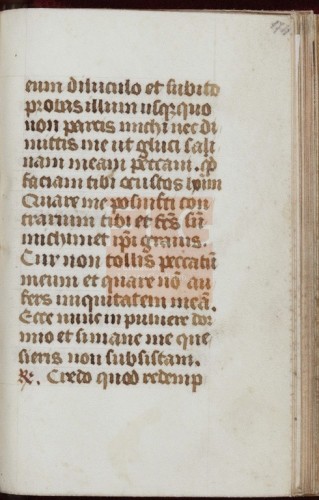 174
eum diluculo et subito
probas illum usq; quo
non parcis michi nec di
mittis me ut gluci sali
uam meam peccaui. qd
faciam tibi o custos hoīm
Quare me posuisti con
trarium tibi et fcs sū
michimet ipi grauis.
Cur non tollis peccatū
meum et quare nō au
fers iniquitatem meā.
Ecce nunc in puluere dor
mio et si mane me que
sieris non subsistam.
R. Credo quod redemp